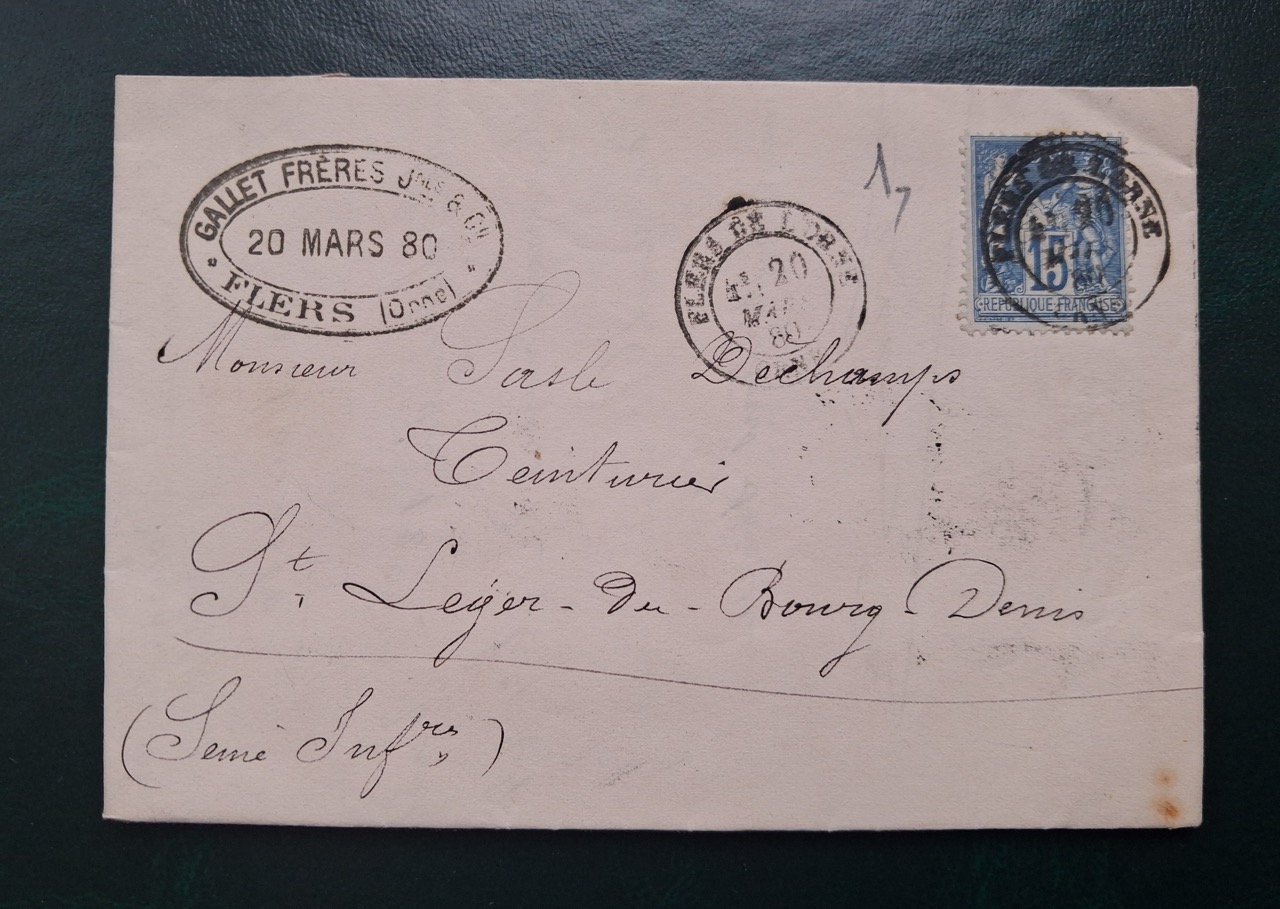 GALLET FRÈRES Jne & Cie
20 MARS 80
FLERS (Orne)
17
FLERS DE L'ORNE
20
MARS
80
FLERS DE L'ORNE
15
RÉPUBLIQUE FRANÇAISE
Monsieur Sasle Dechamps
Teinturier
St. Leger-Du-Bourg-Denis
(Seine Infre)